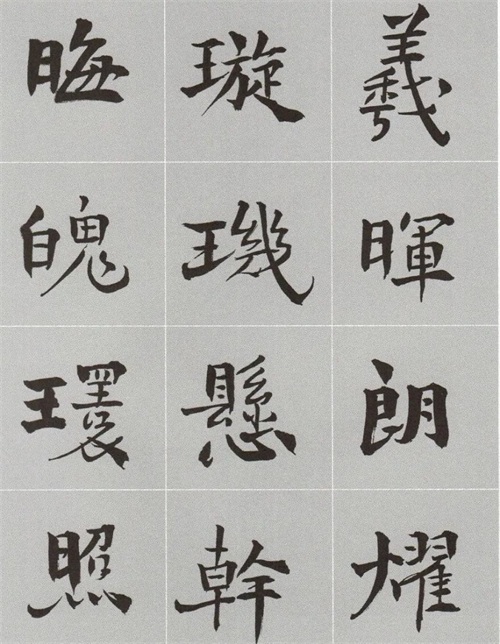 羲暉朗燿
璇璣懸幹
晦魄環照